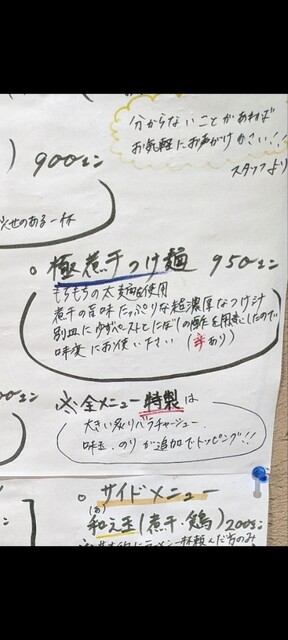 分からないことがあれば
お気軽にお声がけ下さい!!
スタッフより
) 900ェン
のある一杯
○ 極煮干つけ麺 950ェン
もちもちの太麺を使用
煮干の旨味たっぷりな超濃厚なつけ汁
別皿にゆずペーストとにぼしの酢を用意したので
味変にお使い下さい (辛あり)
※全メニュー特製は
大きい炙りバラチャーシュー
味玉、のりが追加でトッピング!!
○ サイドメニュー
(あ)
和え玉(煮干・鶏) 200ェン